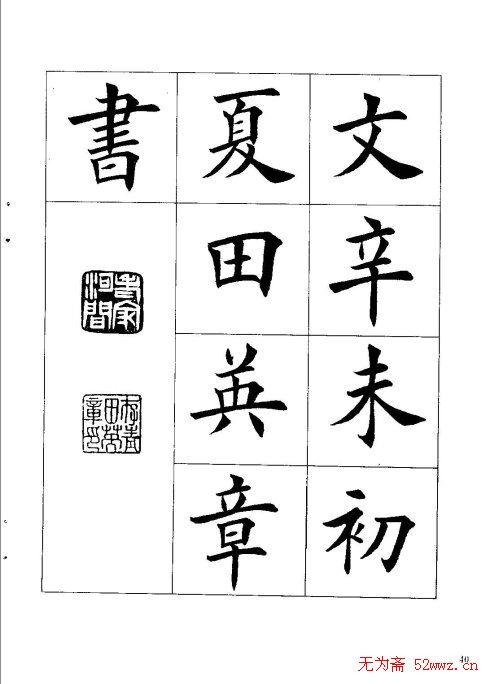 文辛未初
夏田英章
書
40
无为斋 52wwz.cn